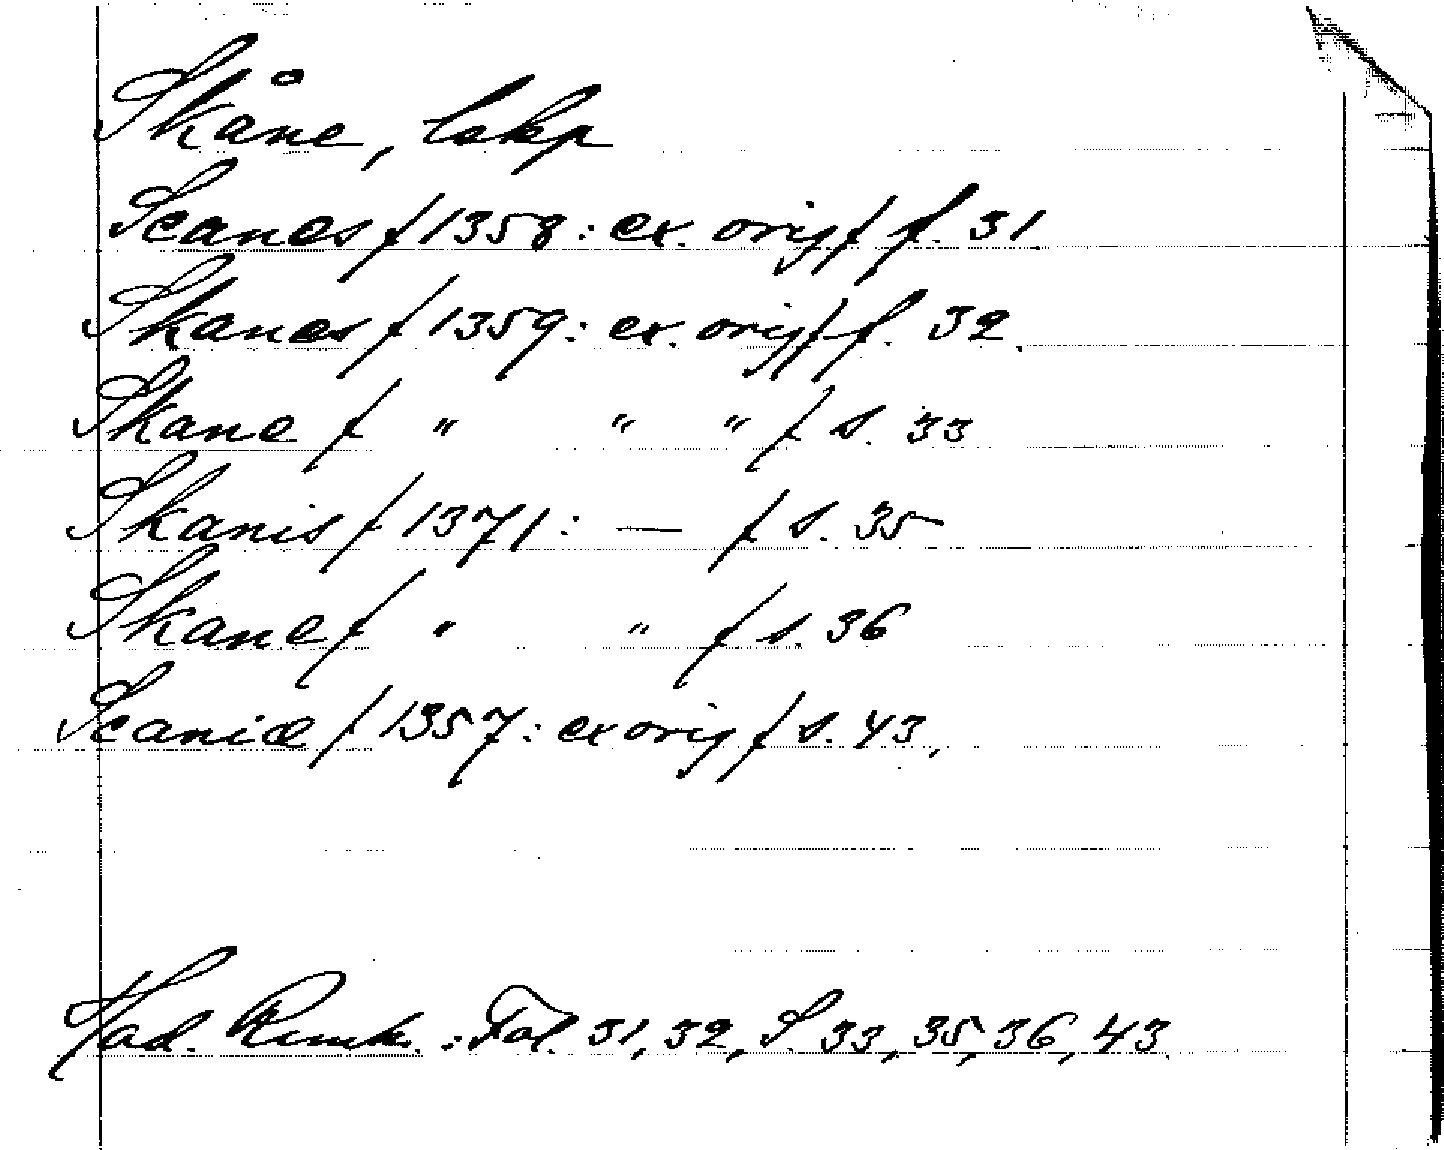 Skåne, lskp
Scanes / 1358: ex. orig / f. 31.
Skanes / 1359: ex. orig / f. 32.
Skane / " " " / s. 33
Skanis / 1371: — / s. 35
Skane / " " / s. 36
Scaniæ / 1357: ex orig / s. 43.
Had. Runk.: Fol. 31, 32, S. 33, 35, 36, 43.